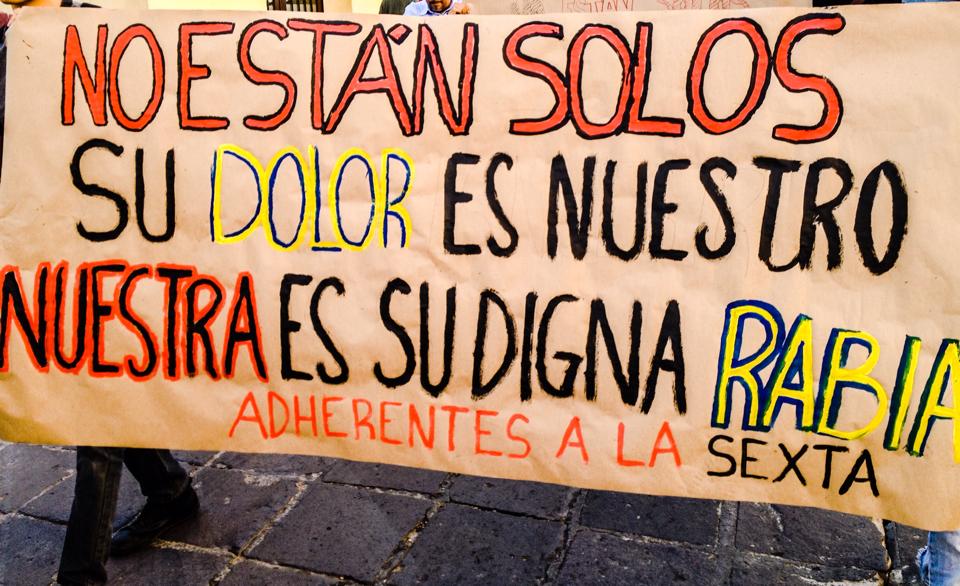 NO ESTÁN SOLOS
SU DOLOR ES NUESTRO
NUESTRA ES SU DIGNA RABIA
ADHERENTES A LA SEXTA